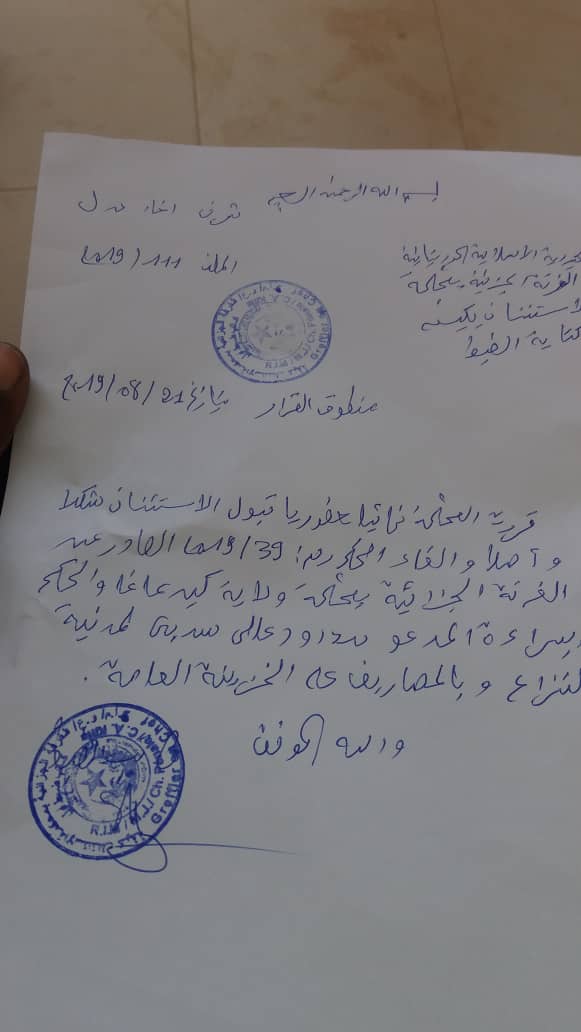 بسم الله الرحمن الرحيم
شرف إخاء عدل
الجمهورية الإسلامية الموريتانية
الغرفة الجزائية بمحكمة
الاستئناف بكيفه
كتابة الضبط
الملف 111/2019
منطوق القرار بتاريخ 21/08/2019
قررت المحكمة نهائيا حضوريا قبول الاستئناف شكلا
و أصلا و الغاء الحكم رقم: 39/2019 الصادر عن
الغرفة الجزائية بمحكمة ولاية كيديماغا والحكم
ببراءة المدعو عالي سيدي لمدنية
النزاع و بالمصاريف على الخزينة العامة.
والله الموفق
Greffier